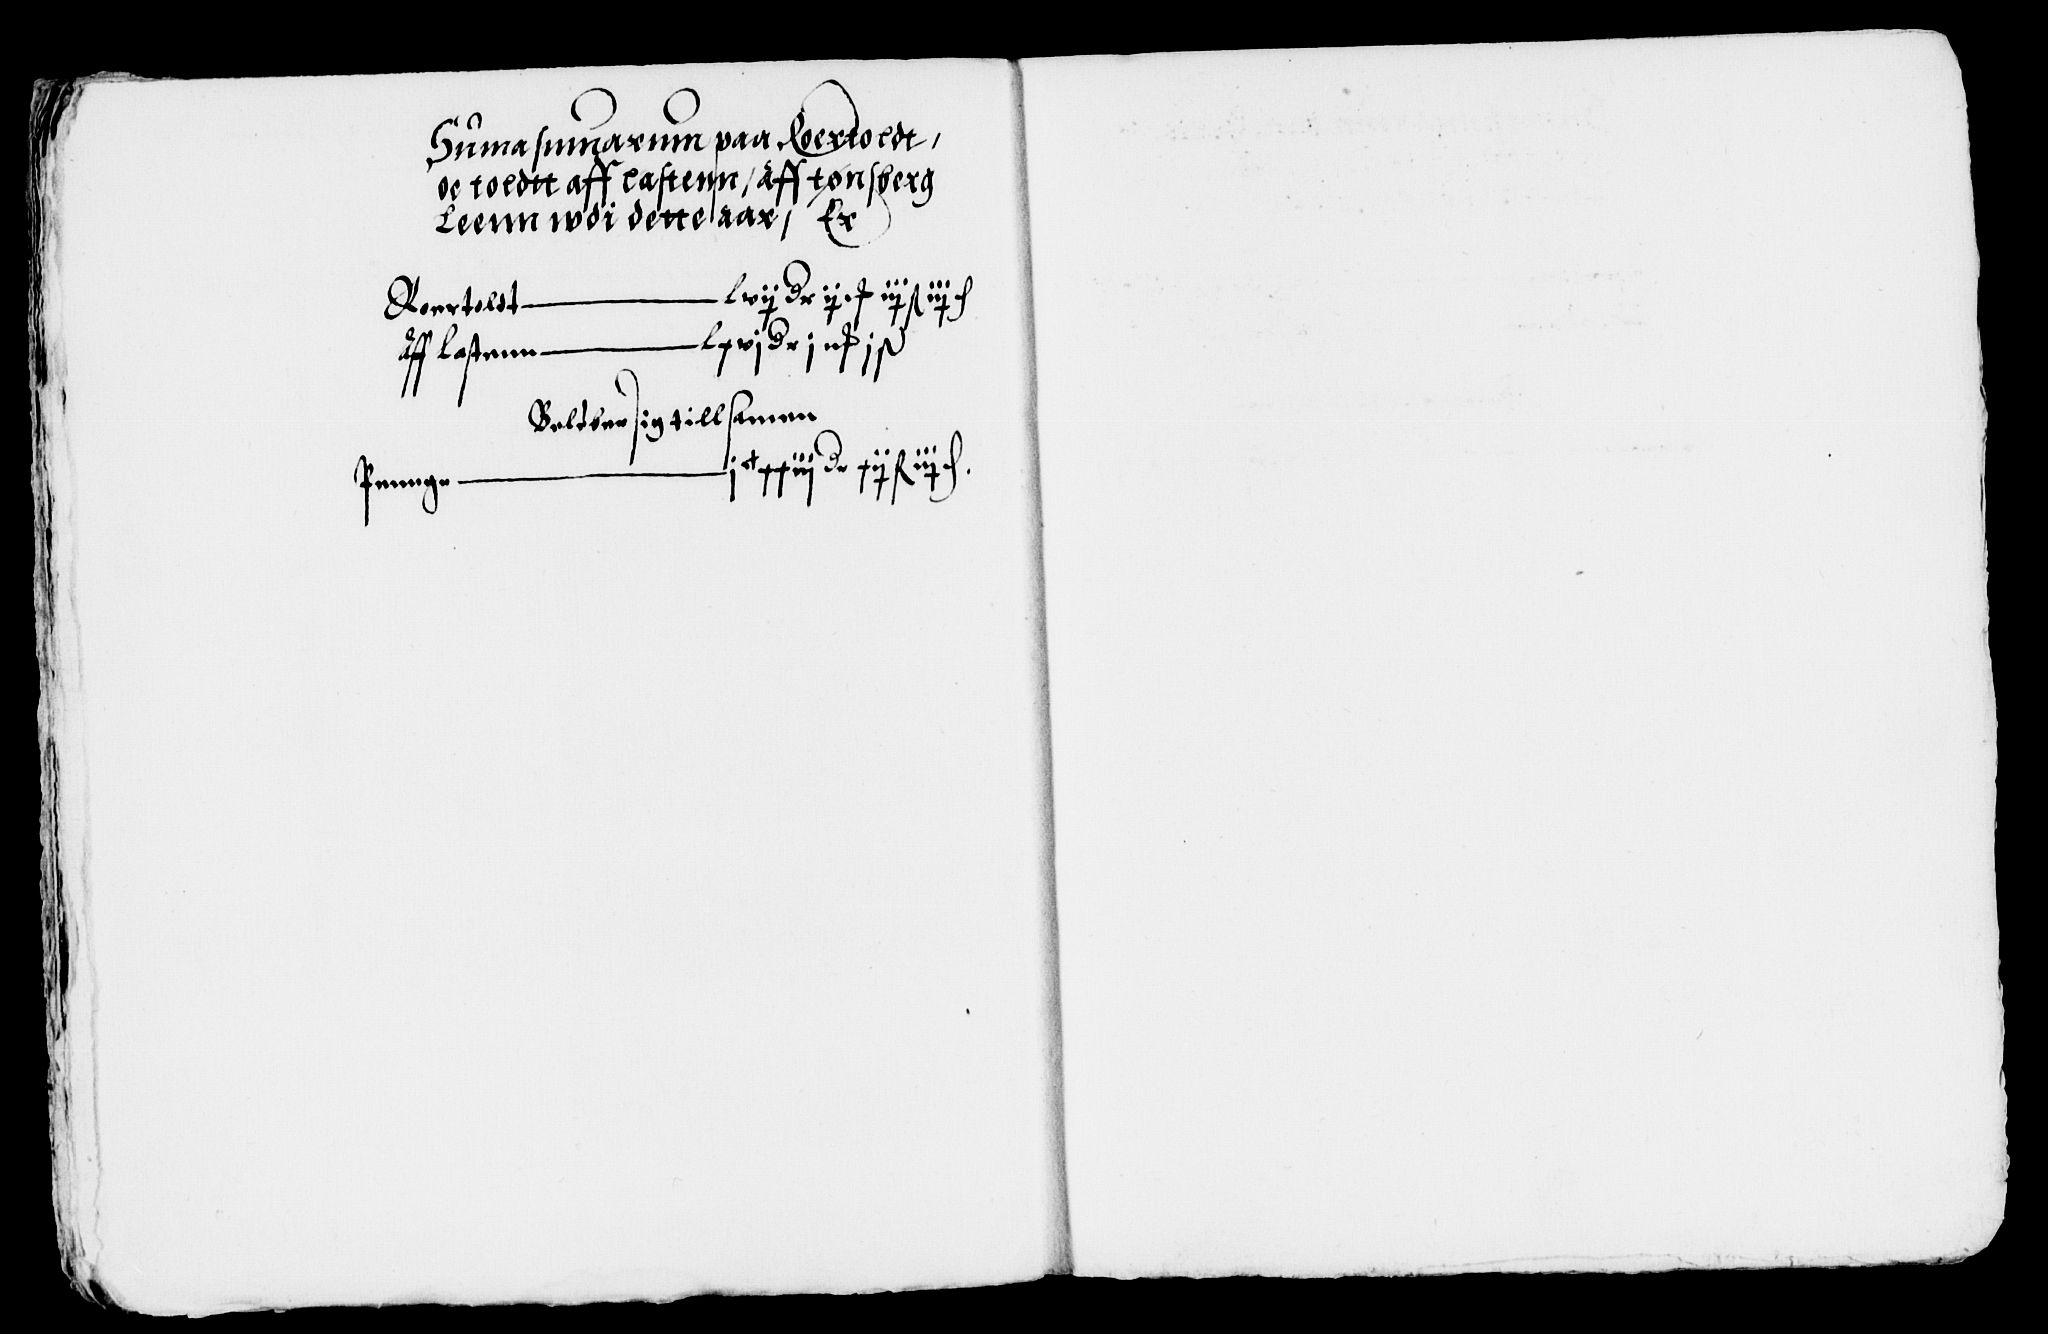 Suma sumarum paa Roertoldt,
oc toldtt aff lastenn, Aff tønsberg
Leenn wdi dette aar, Er
Roertoldt — Lvij dr ij iij ß iij
Aff lastenn — Lxvj dr j j ß
Beløber sig till samen
Pennge — jc xxiij dr xij ß iij